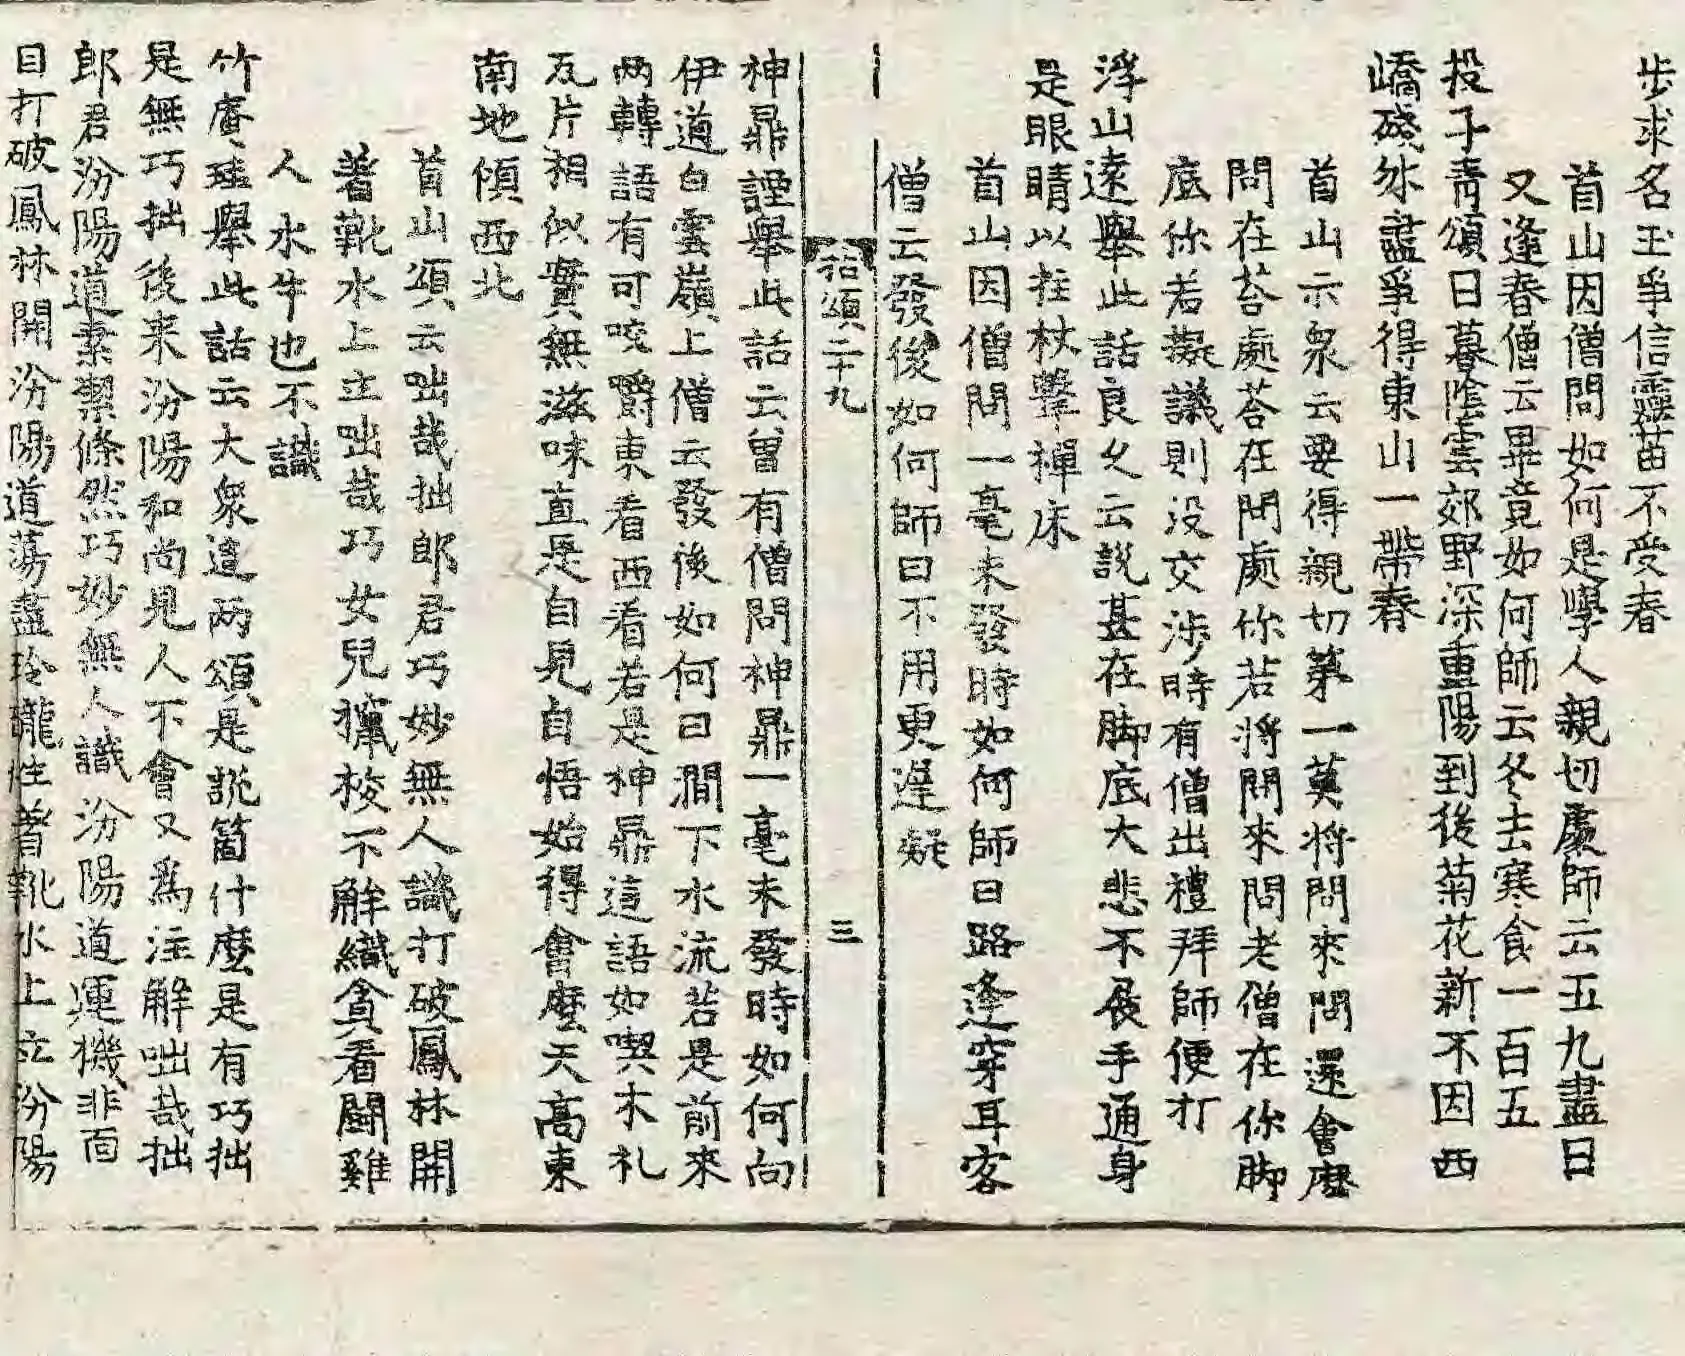 步求名玉爭信靈苗不受春
首山因僧問如何是學人親切處師云五九盡日
又逢春僧云畢竟如何師云冬去寒食一百五
投子靑頌日暮陰雲郊野深重陽到後菊花新不因西
嶠殘氷盡爭得東山一帶春
首山示衆云要得親切第一莫將問來問還會麽
問在荅處荅在問處你若將問來問老僧在你脚
底你若擬議則没交渉時有僧出禮拜師便打
浮山遠舉此話良久云説甚在脚底大悲不展手通身
是眼睛以柱杖擊禅床
首山因僧問一毫未發時如何師曰路逢穿耳客
僧云發後如何師曰不用更遲疑
拈頌二十九 三
神鼎諲舉此話云曽有僧問神鼎一毫未發時如何向
伊道白雲嶺上僧云發後如何曰澗下水流若是前來
两轉語有可咬嚼東看西看若是神鼎這語如喫木札
瓦片相似實無滋味直是自見自悟始得會麽天高東
南地傾西北
首山頌云咄哉拙郎君巧妙無人識打破鳳林開
著靴水上立咄哉巧女兒攛梭不解織貪看闘雞
人水牛也不識
竹庵珪舉此話云大衆這两頌是説箇什麽是有巧拙
是無巧拙後来汾陽和尚見人不會又爲注解咄哉拙
郎君汾陽道素潔條然巧妙無人識汾陽道運機非面
目打破鳳林開汾陽道蕩盡玲瓏性著靴水上立汾陽